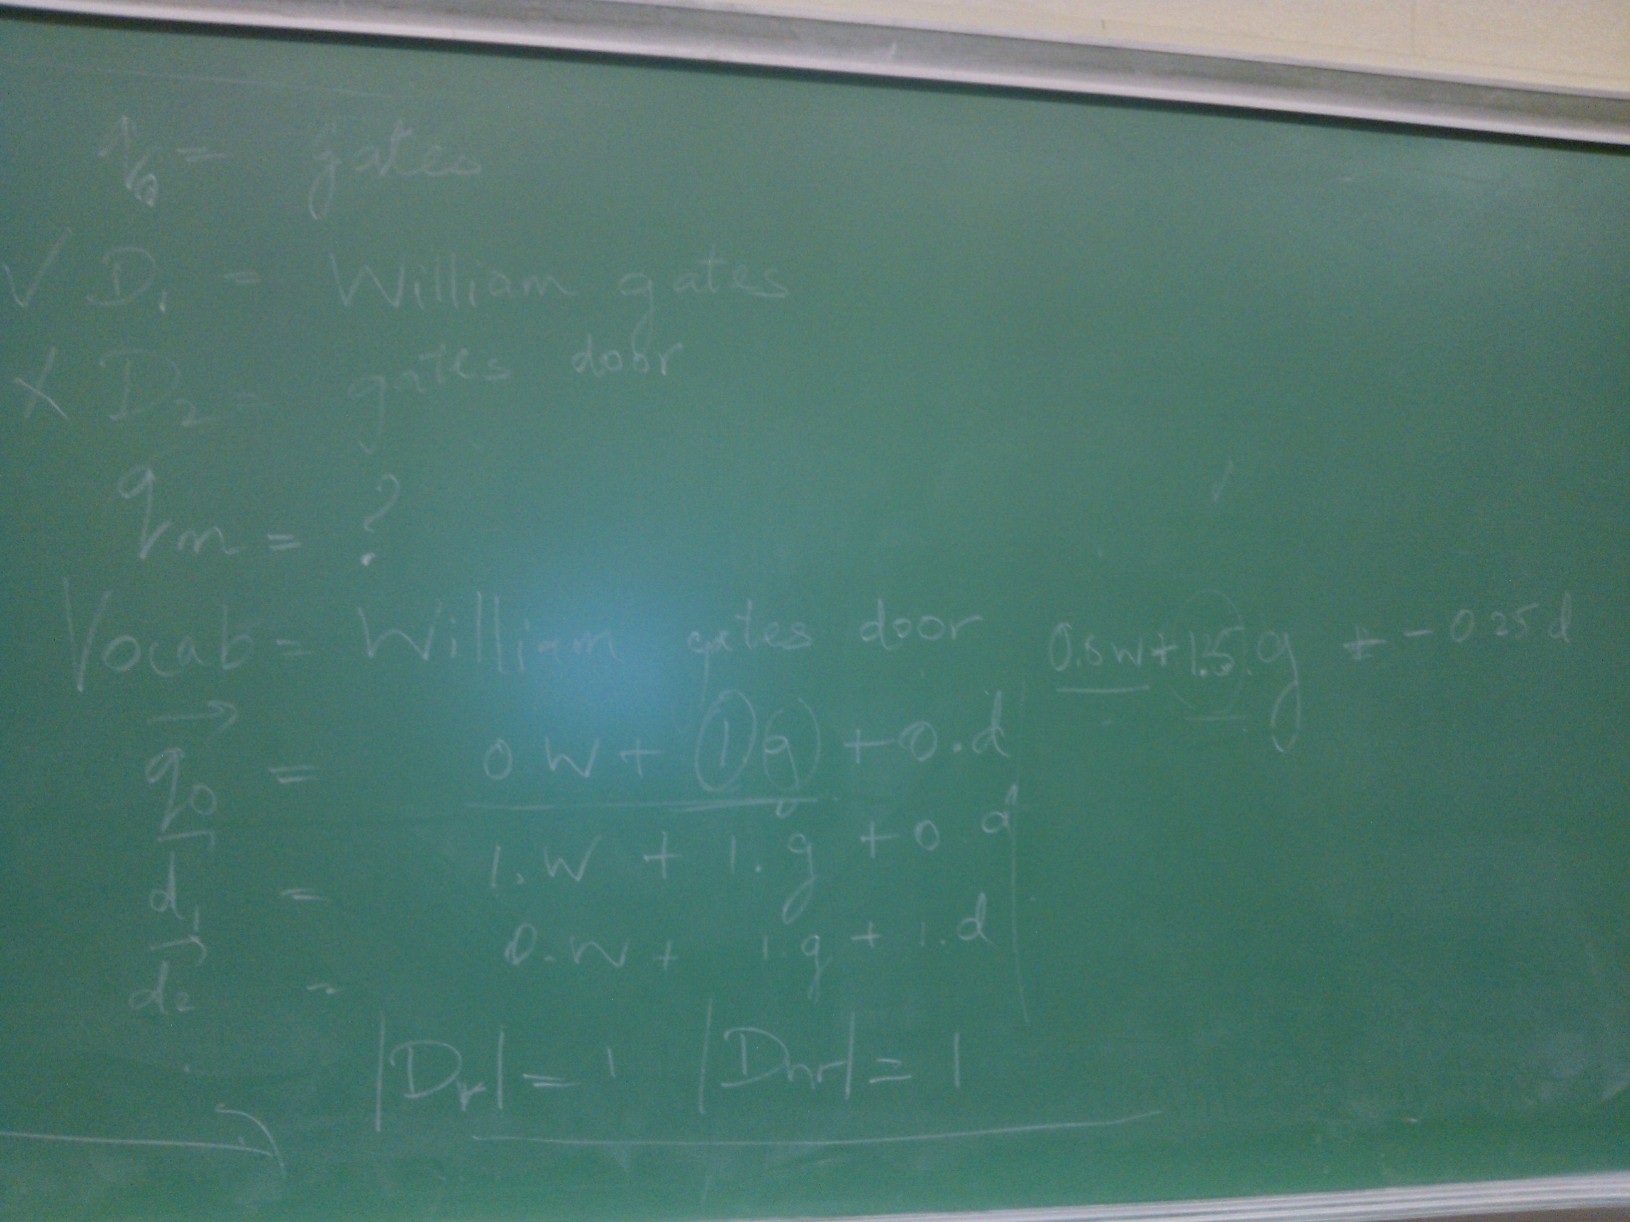 q0 = gates
✓ D1 = William gates
X D2 = gates door
qm = ?
Vocab = William gates door
0.5w + 1.25.g + - 0.25d
q0 = 0 W + 1 g + 0.d
d1 = 1.W + 1.g + 0 d
d2 = 0.W + 1.g + 1.d
|Dr| = 1 |Dnr| = 1